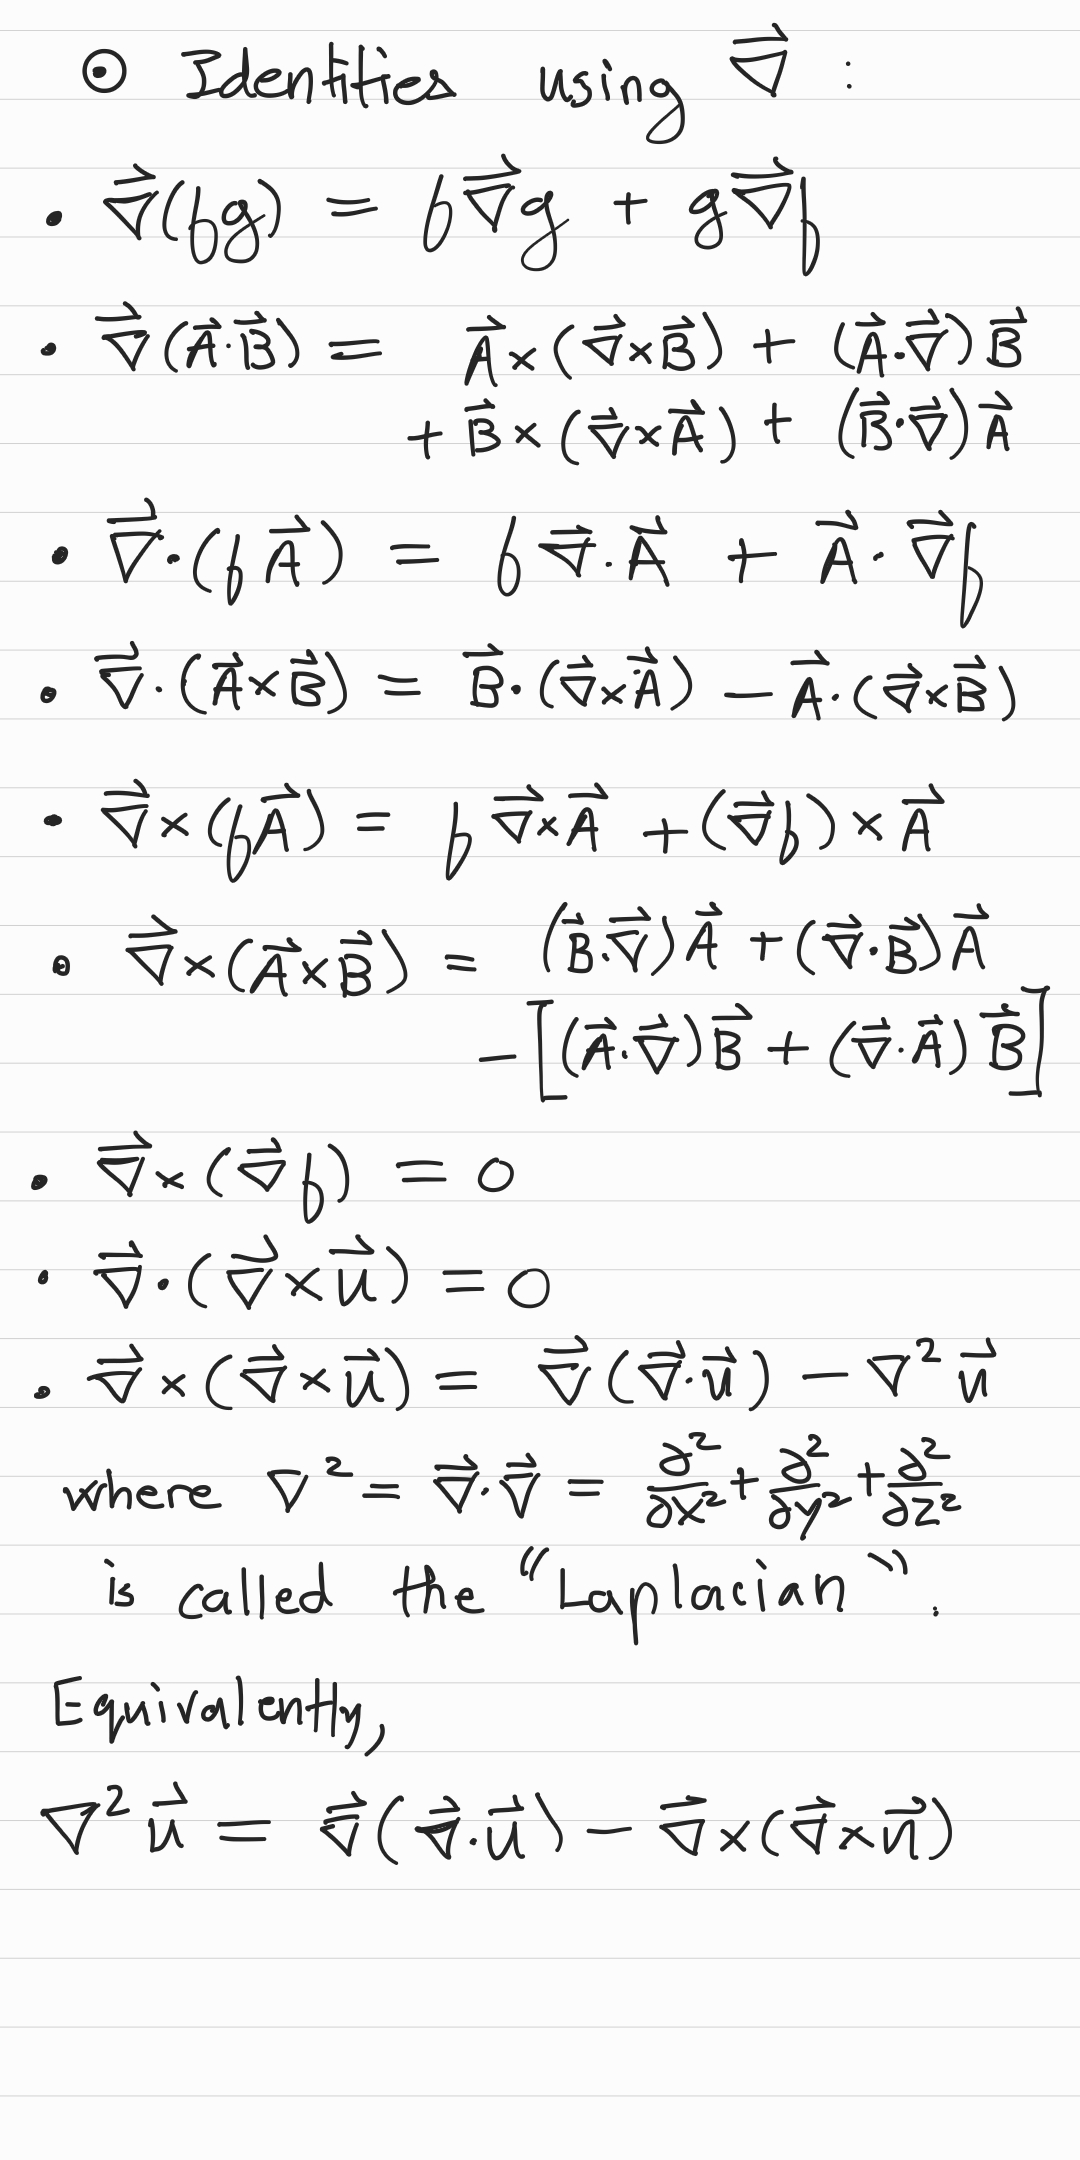 ⊙ Identities using ∇⃗ :
• ∇⃗(fg) = f∇⃗g + g∇⃗f
• ∇⃗(A⃗·B⃗) = A⃗×(∇⃗×B⃗) + (A⃗·∇⃗)B⃗
+ B⃗×(∇⃗×A⃗) + (B⃗·∇⃗)A⃗
• ∇⃗·(fA⃗) = f∇⃗·A⃗ + A⃗·∇⃗f
• ∇⃗·(A⃗×B⃗) = B⃗·(∇⃗×A⃗) − A⃗·(∇⃗×B⃗)
• ∇⃗×(fA⃗) = f∇⃗×A⃗ + (∇⃗f)×A⃗
• ∇⃗×(A⃗×B⃗) = (B⃗·∇⃗)A⃗ + (∇⃗·B⃗)A⃗
− [(A⃗·∇⃗)B⃗ + (∇⃗·A⃗)B⃗]
• ∇⃗×(∇⃗f) = 0
• ∇⃗·(∇⃗×u⃗) = 0
• ∇⃗×(∇⃗×u⃗) = ∇⃗(∇⃗·u⃗) − ∇²u⃗
where ∇² = ∇⃗·∇⃗ = ∂²/∂x² + ∂²/∂y² + ∂²/∂z²
is called the "Laplacian".
Equivalently,
∇²u⃗ = ∇⃗(∇⃗·u⃗) − ∇⃗×(∇⃗×u⃗)